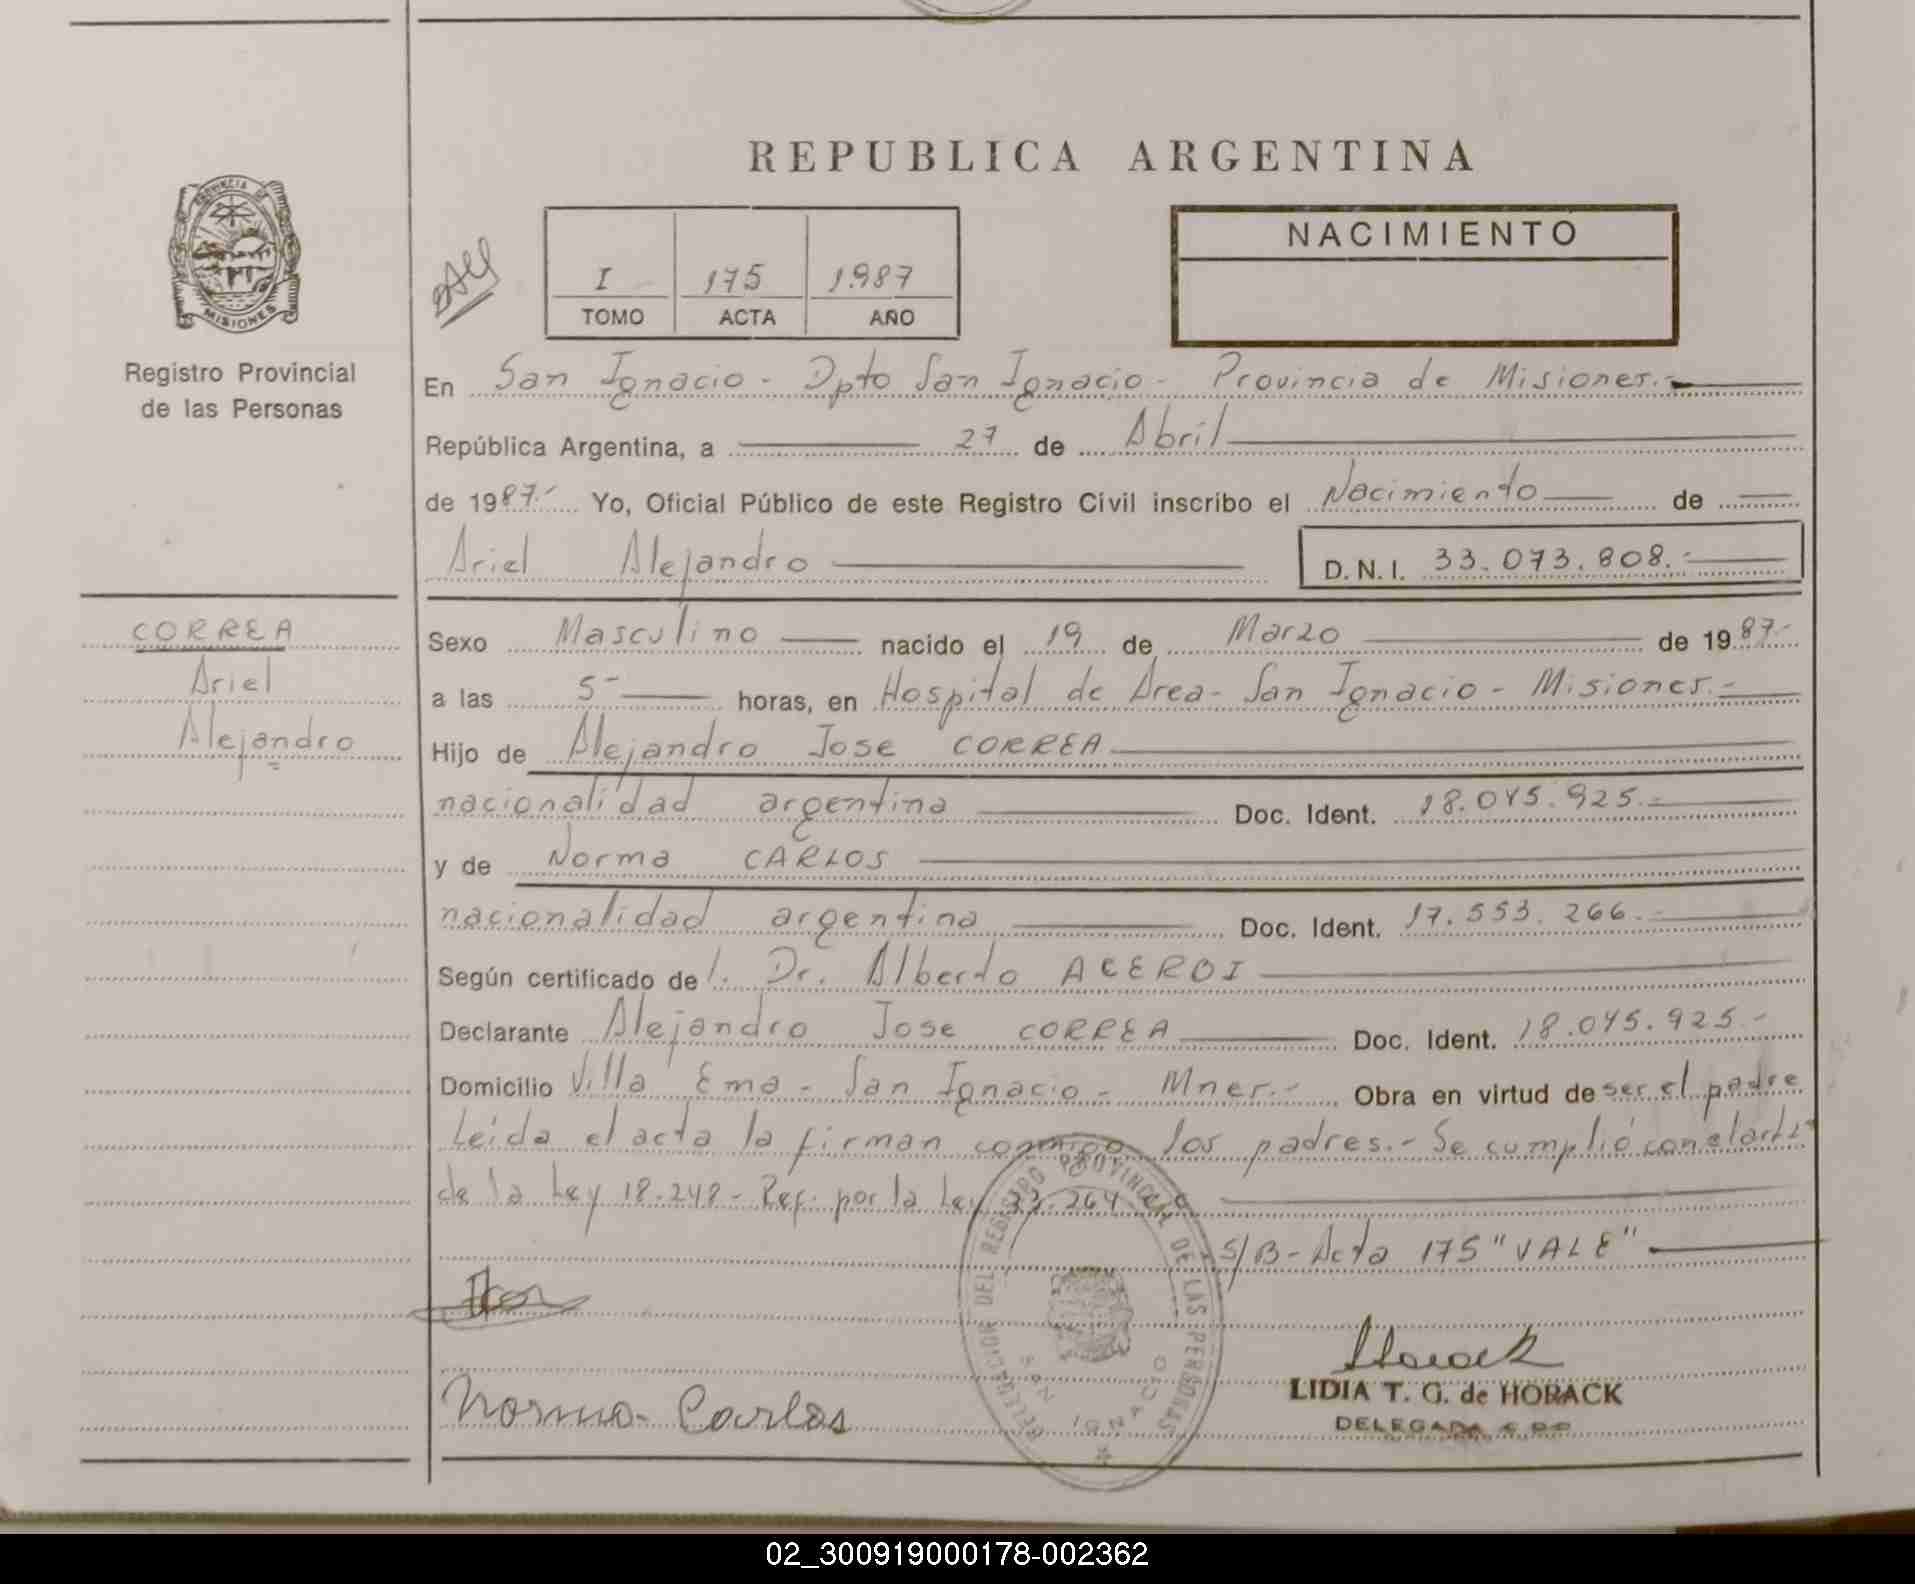 REPUBLICA ARGENTINA
PROVINCIA DE
MISIONES
Registro Provincial
de las Personas
I 175 1987
TOMO ACTA AÑO
NACIMIENTO
En San Ignacio - Dpto San Ignacio - Provincia de Misiones.-
República Argentina, a 27 de Abril
de 1987.- Yo, Oficial Público de este Registro Civil inscribo el Nacimiento de
Ariel Alejandro D.N.I. 33.073.808.-
CORREA
Ariel
Alejandro
Sexo Masculino nacido el 19 de Marzo de 1987.-
a las 5- horas, en Hospital de Area - San Ignacio - Misiones.-
Hijo de Alejandro Jose CORREA
nacionalidad argentina Doc. Ident. 18.045.925.-
y de Norma CARLOS
nacionalidad argentina Doc. Ident. 17.553.266.-
Según certificado del. Dr. Alberto ACEROI
Declarante Alejandro Jose CORREA Doc. Ident. 18.045.925.-
Domicilio Villa Ema - San Ignacio - Mnes.- Obra en virtud de ser el padre
Leída el acta la firman conmigo los padres.- Se cumplió con el
de la Ley 18.248 - Ref. por la Ley 23.264
S/B - Acta 175 "VALE"
DELEGACION DEL REGISTRO PROVINCIAL DE LAS PERSONAS
SAN IGNACIO
Norma Carlos
LIDIA T. G. de HORACK
DELEGADA
02_300919000178-002362